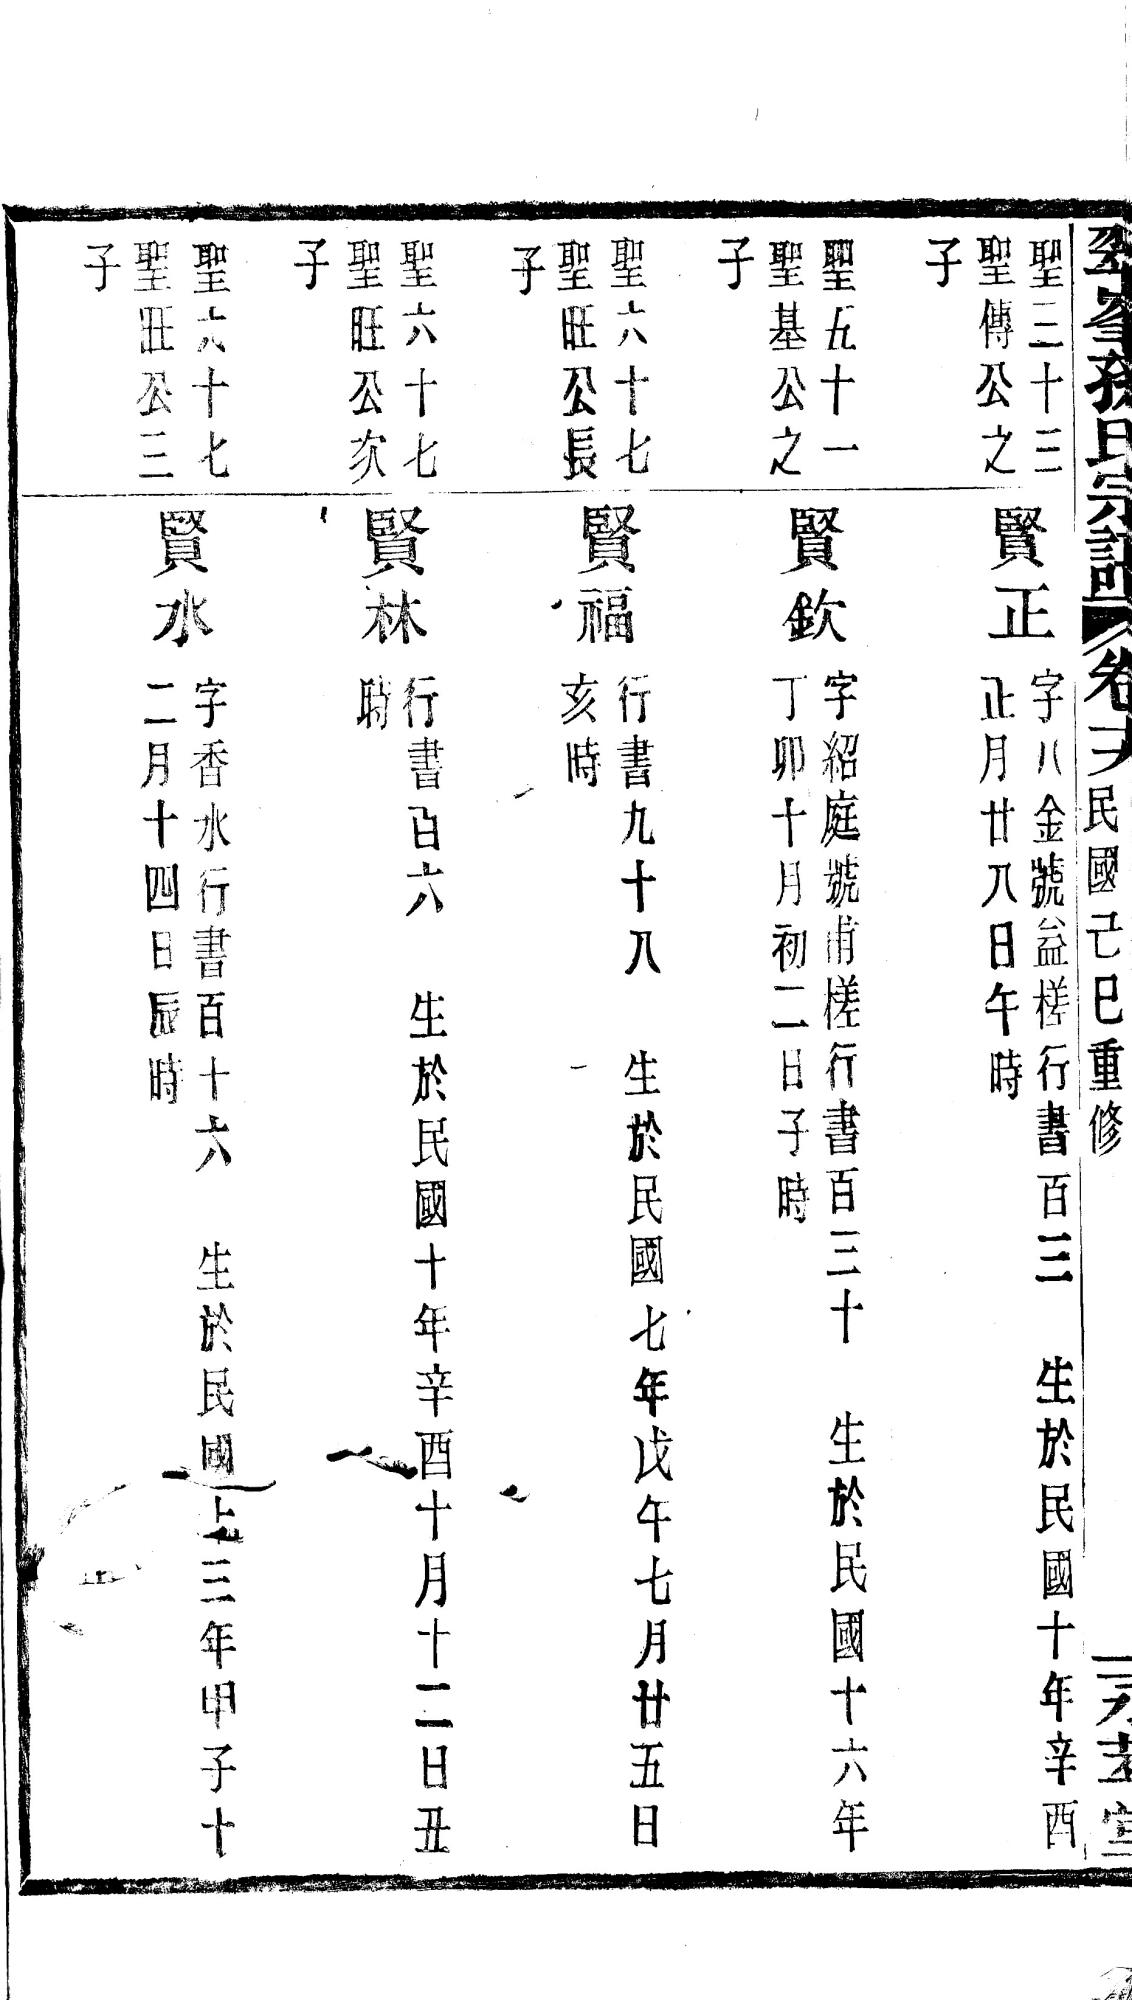 孫氏宗譜 卷 民國己巳重修
堂
聖三十三
聖傳公之
子
賢正
字八金號益槎行書百三 生於民國十年辛酉
正月廿八日午時
聖五十一
聖基公之
子
賢欽
字紹庭號甫槎行書百三十 生於民國十六年
丁卯十月初二日子時
聖六十七
聖旺公長
子
賢福
行書九十八 生於民國七年戊午七月廿五日
亥時
聖六十七
聖旺公次
子
賢林
行書百六 生於民國十年辛酉十月十二日丑
時
聖六十七
聖旺公三
子
賢水
字香水行書百十六 生於民國十三年甲子十
二月十四日辰時